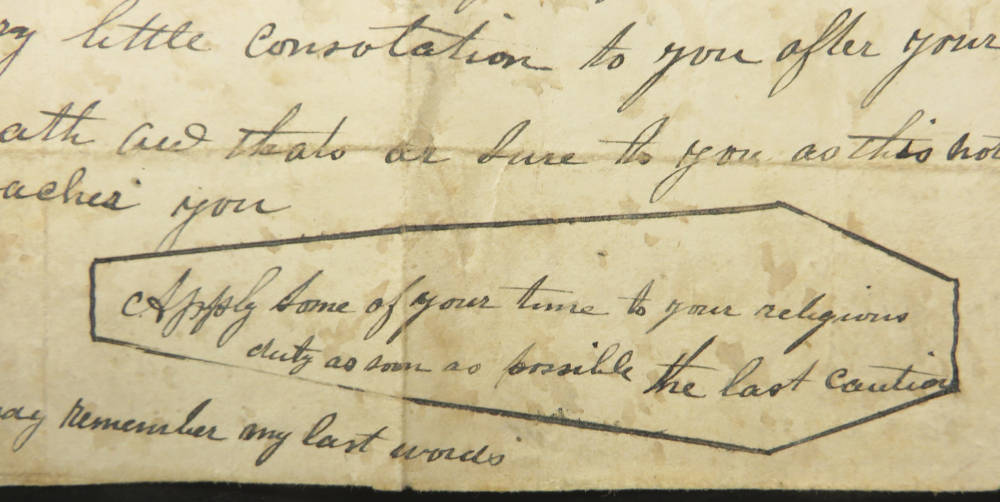 ry little consolation to you after your
ath and thats as sure to you as this not
aches you
Apply some of your time to your religious
duty as soon as possible the last caution
ay remember my last words